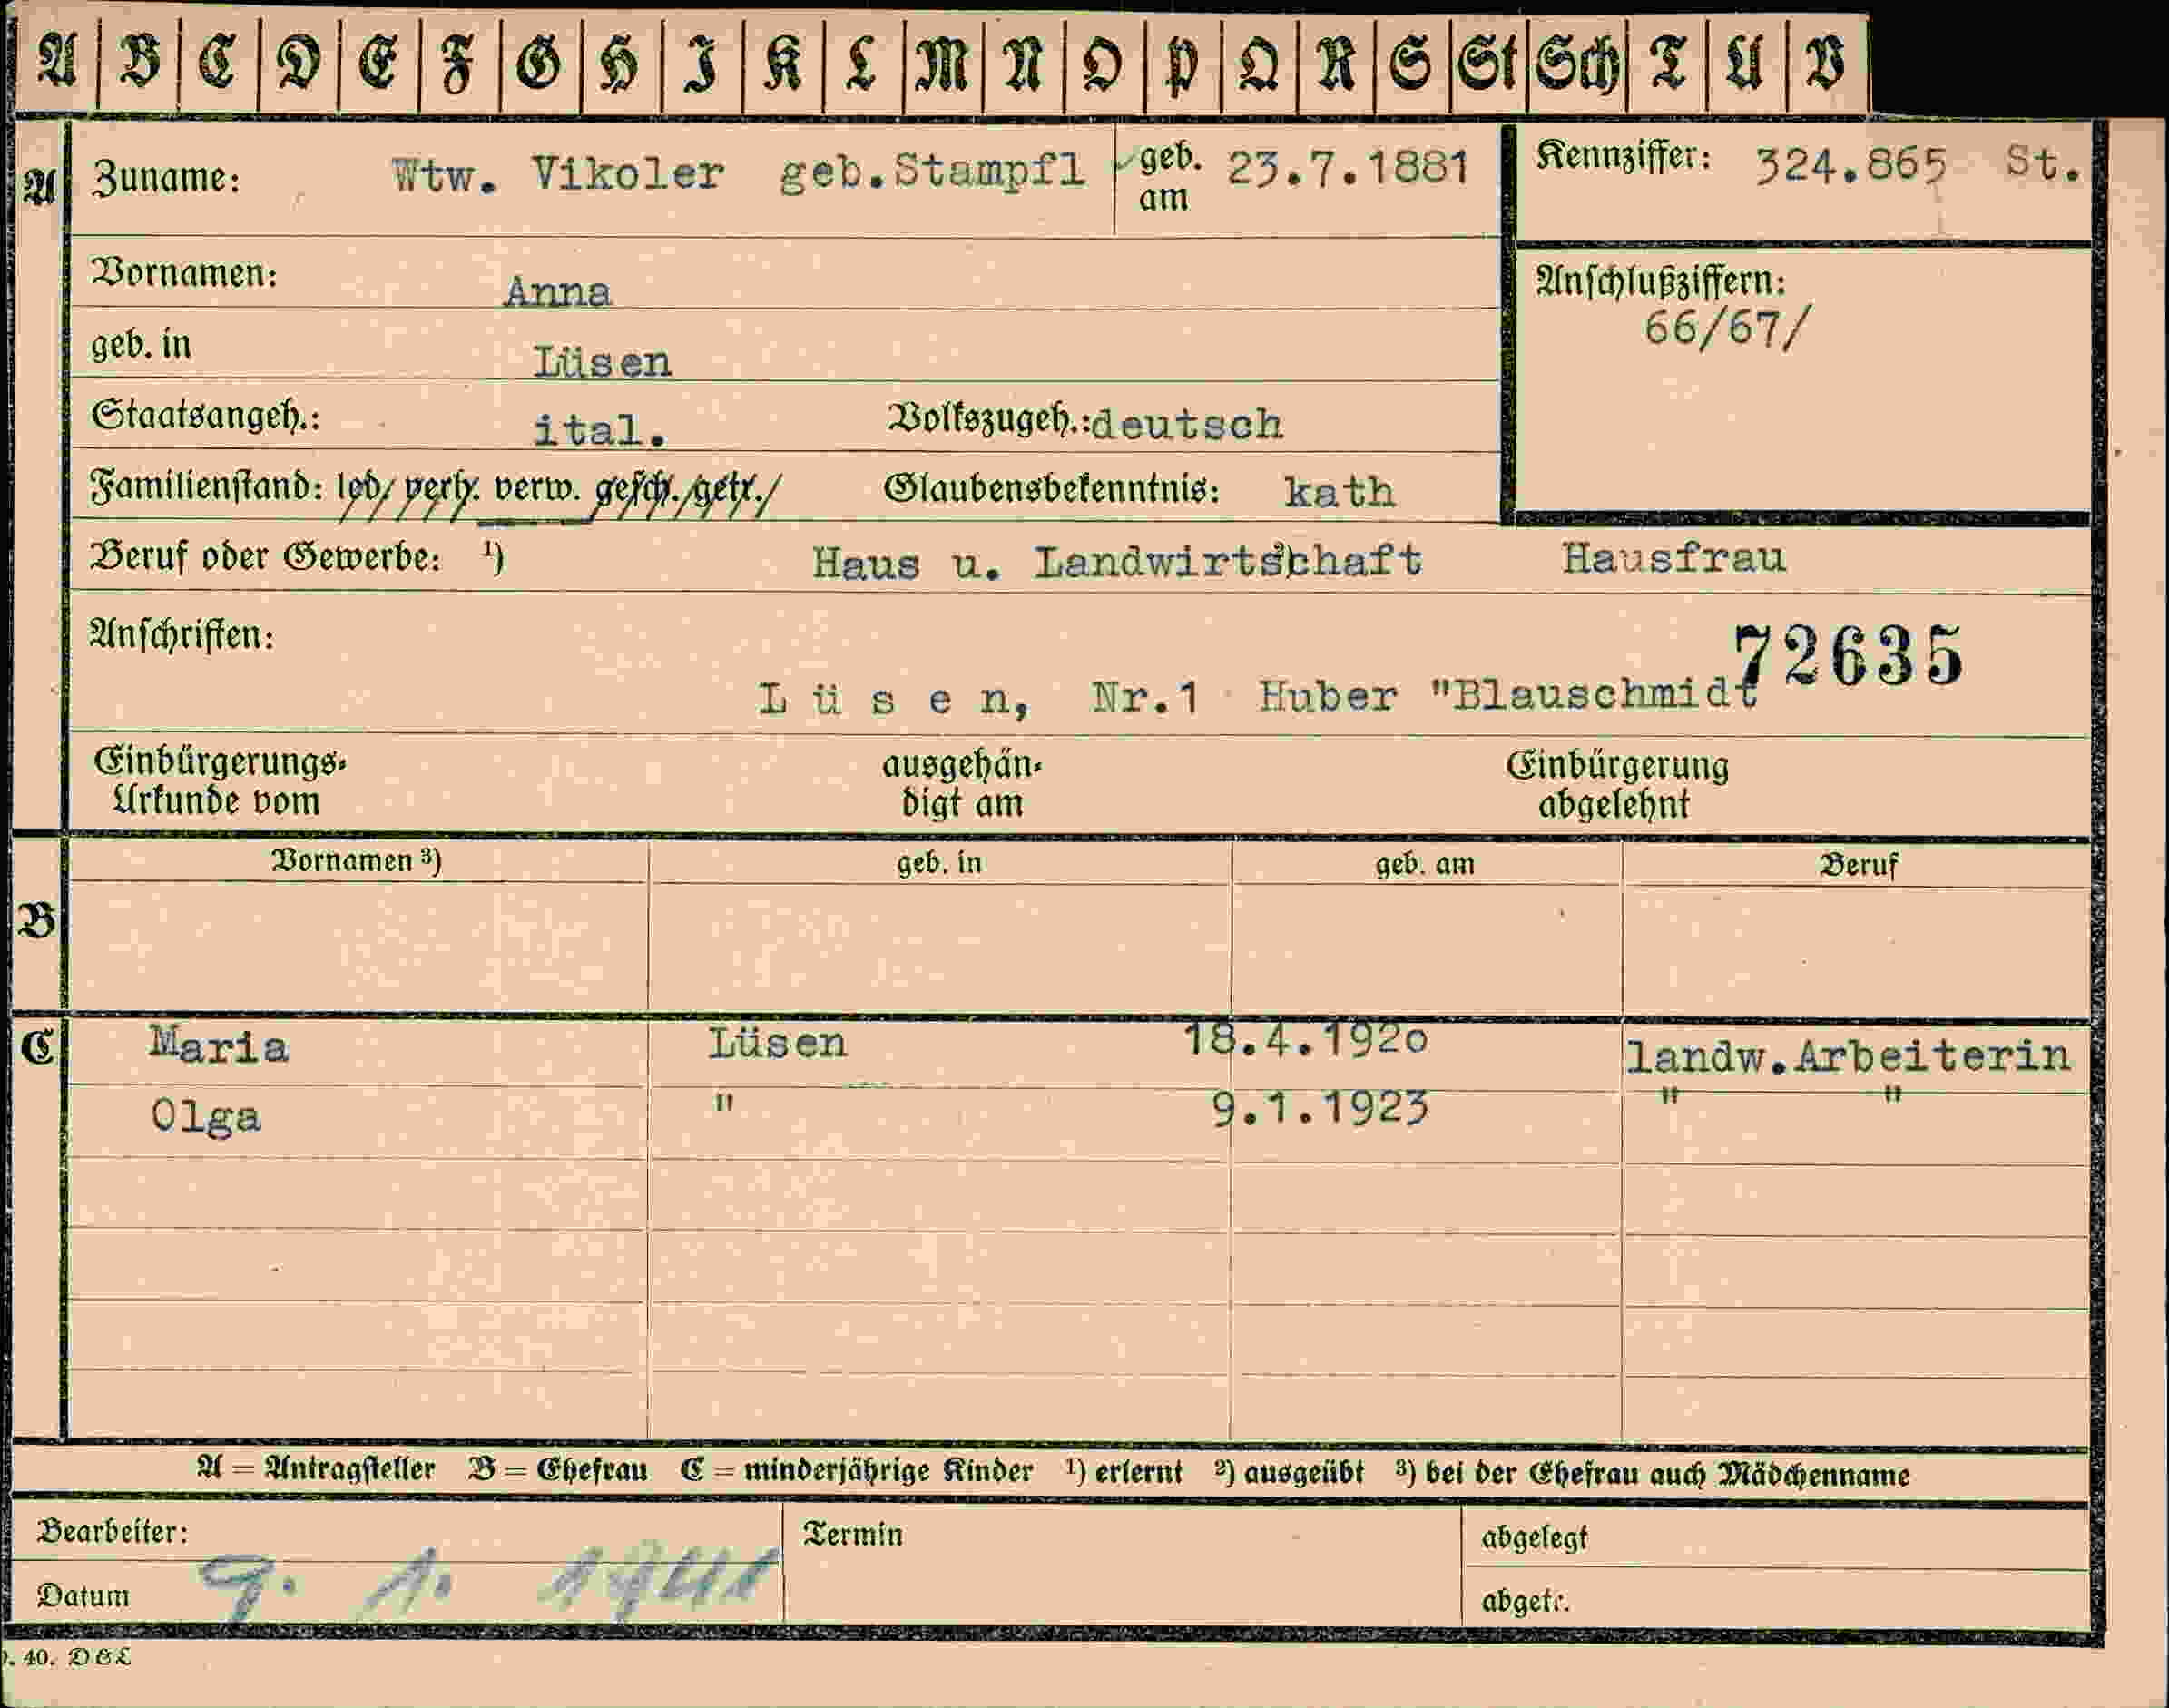 A B C D E F G H I K L M N O P Q R S St Sch T U V
A Zuname: Wtw. Vikoler geb.Stampfl geb. am 23.7.1881 Kennziffer: 324.865 St.
Vornamen: Anna
Anschlußziffern:
66/67/
geb. in Lüsen
Staatsangeh.: ital. Volkszugeh.: deutsch
Familienstand: led/ verh. verw. gesch./getr./ Glaubensbekenntnis: kath
Beruf oder Gewerbe: ¹) Haus u. Landwirtschaft Hausfrau
Anschriften:
72635
L ü s e n, Nr.1 Huber "Blauschmidt
Einbürgerungs-
Urkunde vom
ausgehän-
digt am
Einbürgerung
abgelehnt
Vornamen ³) geb. in geb. am Beruf
B
C Maria Lüsen 18.4.1920 landw.Arbeiterin
Olga " 9.1.1923 " "
A = Antragsteller B = Ehefrau C = minderjährige Kinder ¹) erlernt ²) ausgeübt ³) bei der Ehefrau auch Mädchenname
Bearbeiter: Termin abgelegt
Datum 9. 1. 1941 abgetr.
. 40. D&L